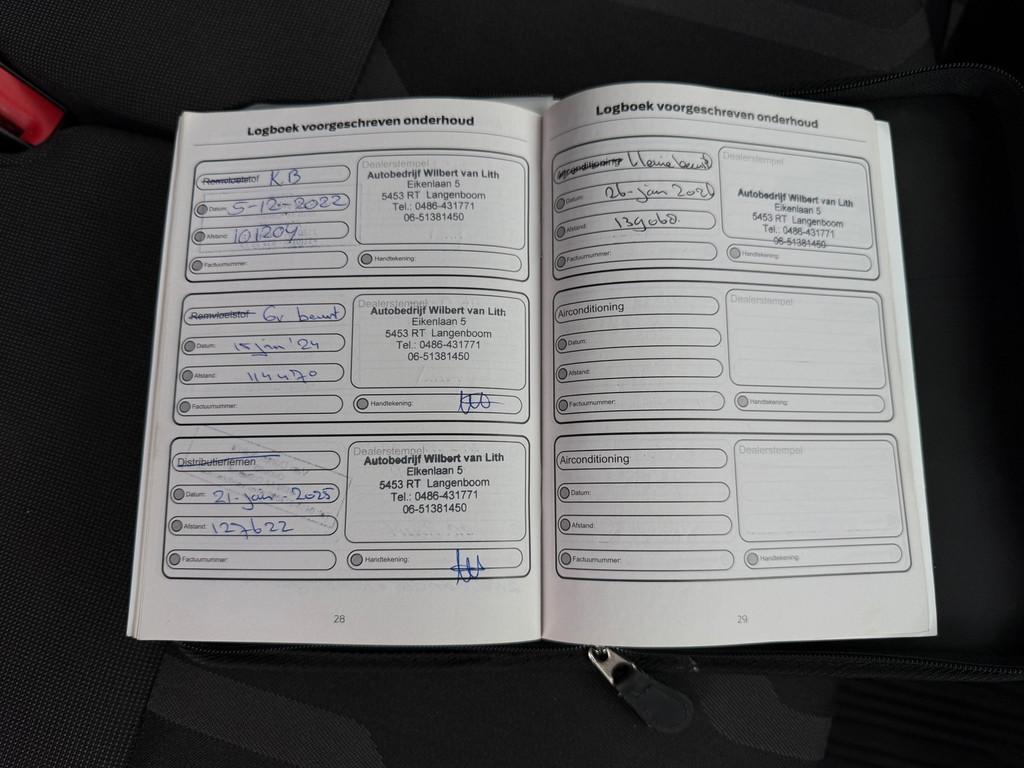 Logboek voorgeschreven onderhoud
Remvloeistof K.B
Datum: 5-12-2022
Afstand: 101204
Factuurnummer:
Dealerstempel
Autobedrijf Wilbert van Lith
Eikenlaan 5
5453 RT Langenboom
Tel.: 0486-431771
06-51381450
Handtekening:
Remvloeistof Gr beurt
Datum: 15 jan '24
Afstand: 114470
Factuurnummer:
Dealerstempel
Autobedrijf Wilbert van Lith
Eikenlaan 5
5453 RT Langenboom
Tel.: 0486-431771
06-51381450
Handtekening:
Distributieriemen
Datum: 21-jan-2025
Afstand: 127622
Factuurnummer:
Dealerstempel
Autobedrijf Wilbert van Lith
Eikenlaan 5
5453 RT Langenboom
Tel.: 0486-431771
06-51381450
Handtekening:
28
Logboek voorgeschreven onderhoud
Airconditioning Kleine beurt
Datum: 26-jan
Afstand: 139068.
Factuurnummer:
Dealerstempel
Autobedrijf Wilbert van Lith
Eikenlaan 5
5453 RT Langenboom
Tel.: 0486-431771
06-51381450
Handtekening:
Airconditioning
Datum:
Afstand:
Factuurnummer:
Dealerstempel
Handtekening:
Airconditioning
Datum:
Afstand:
Factuurnummer:
Dealerstempel
Handtekening:
29